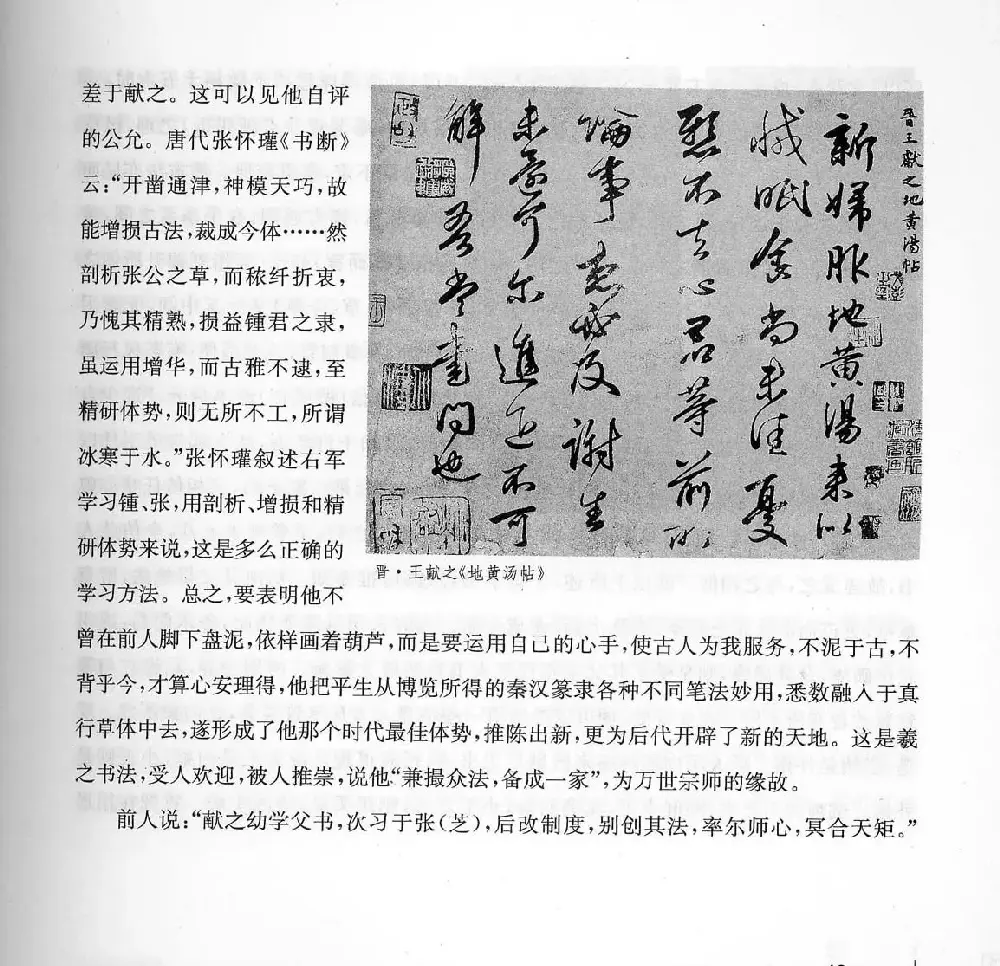 差于献之。这可以见他自评
的公允。唐代张怀瓘《书断》
云:“开凿通津,神模天巧,故
能增损古法,裁成今体……然
剖析张公之草,而秾纤折衷,
乃愧其精熟,损益锺君之隶,
虽运用增华,而古雅不逮,至
精研体势,则无所不工,所谓
冰寒于水。”张怀瓘叙述右军
学习锺、张,用剖析、增损和精
研体势来说,这是多么正确的
学习方法。总之,要表明他不
晉王獻之地黃湯帖
新婦服地黃湯来似
減眠食尚未佳憂
懸不去心君等前所
論事想必及謝生
未還可尔進退不可
解吾當書問也
晋·王献之《地黄汤帖》
曾在前人脚下盘泥,依样画着葫芦,而是要运用自己的心手,使古人为我服务,不泥于古,不
背乎今,才算心安理得,他把平生从博览所得的秦汉篆隶各种不同笔法妙用,悉数融入于真
行草体中去,遂形成了他那个时代最佳体势,推陈出新,更为后代开辟了新的天地。这是羲
之书法,受人欢迎,被人推崇,说他“兼撮众法,备成一家”,为万世宗师的缘故。
前人说:“献之幼学父书,次习于张(芝),后改制度,别创其法,率尔师心,冥合天矩。”